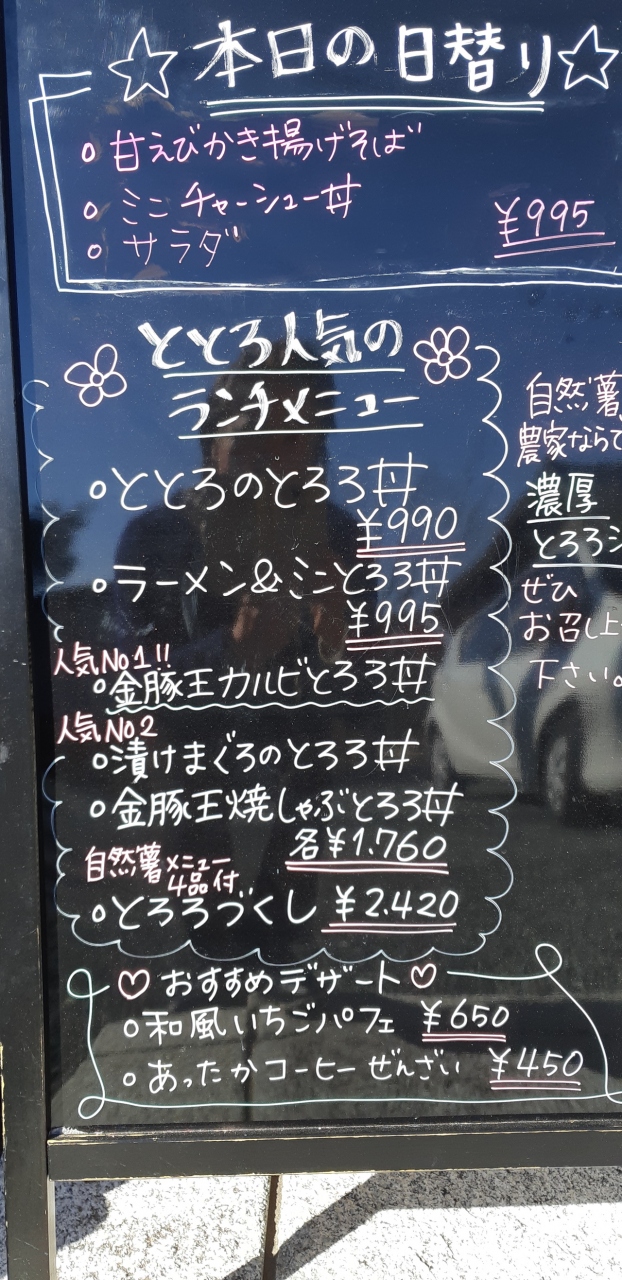 ☆本日の日替り☆
○甘えびかき揚げそば
○ミニチャーシュー丼
○サラダ
¥995
ととろ人気の
ランチメニュー
○ととろのとろろ丼
¥990
○ラーメン&ミニとろろ丼
¥995
人気No1!!
○金豚王カルビとろろ丼
人気No2
○漬けまぐろのとろろ丼
○金豚王焼しゃぶとろろ丼
各¥1.760
自然薯メニュー
4品付
○とろろづくし ¥2.420
♡おすすめデザート♡
○和風いちごパフェ ¥650
○あったかコーヒーぜんざい ¥450
自然薯
農家ならで
濃厚
とろろシ
ぜひ
お召し上
下さい。